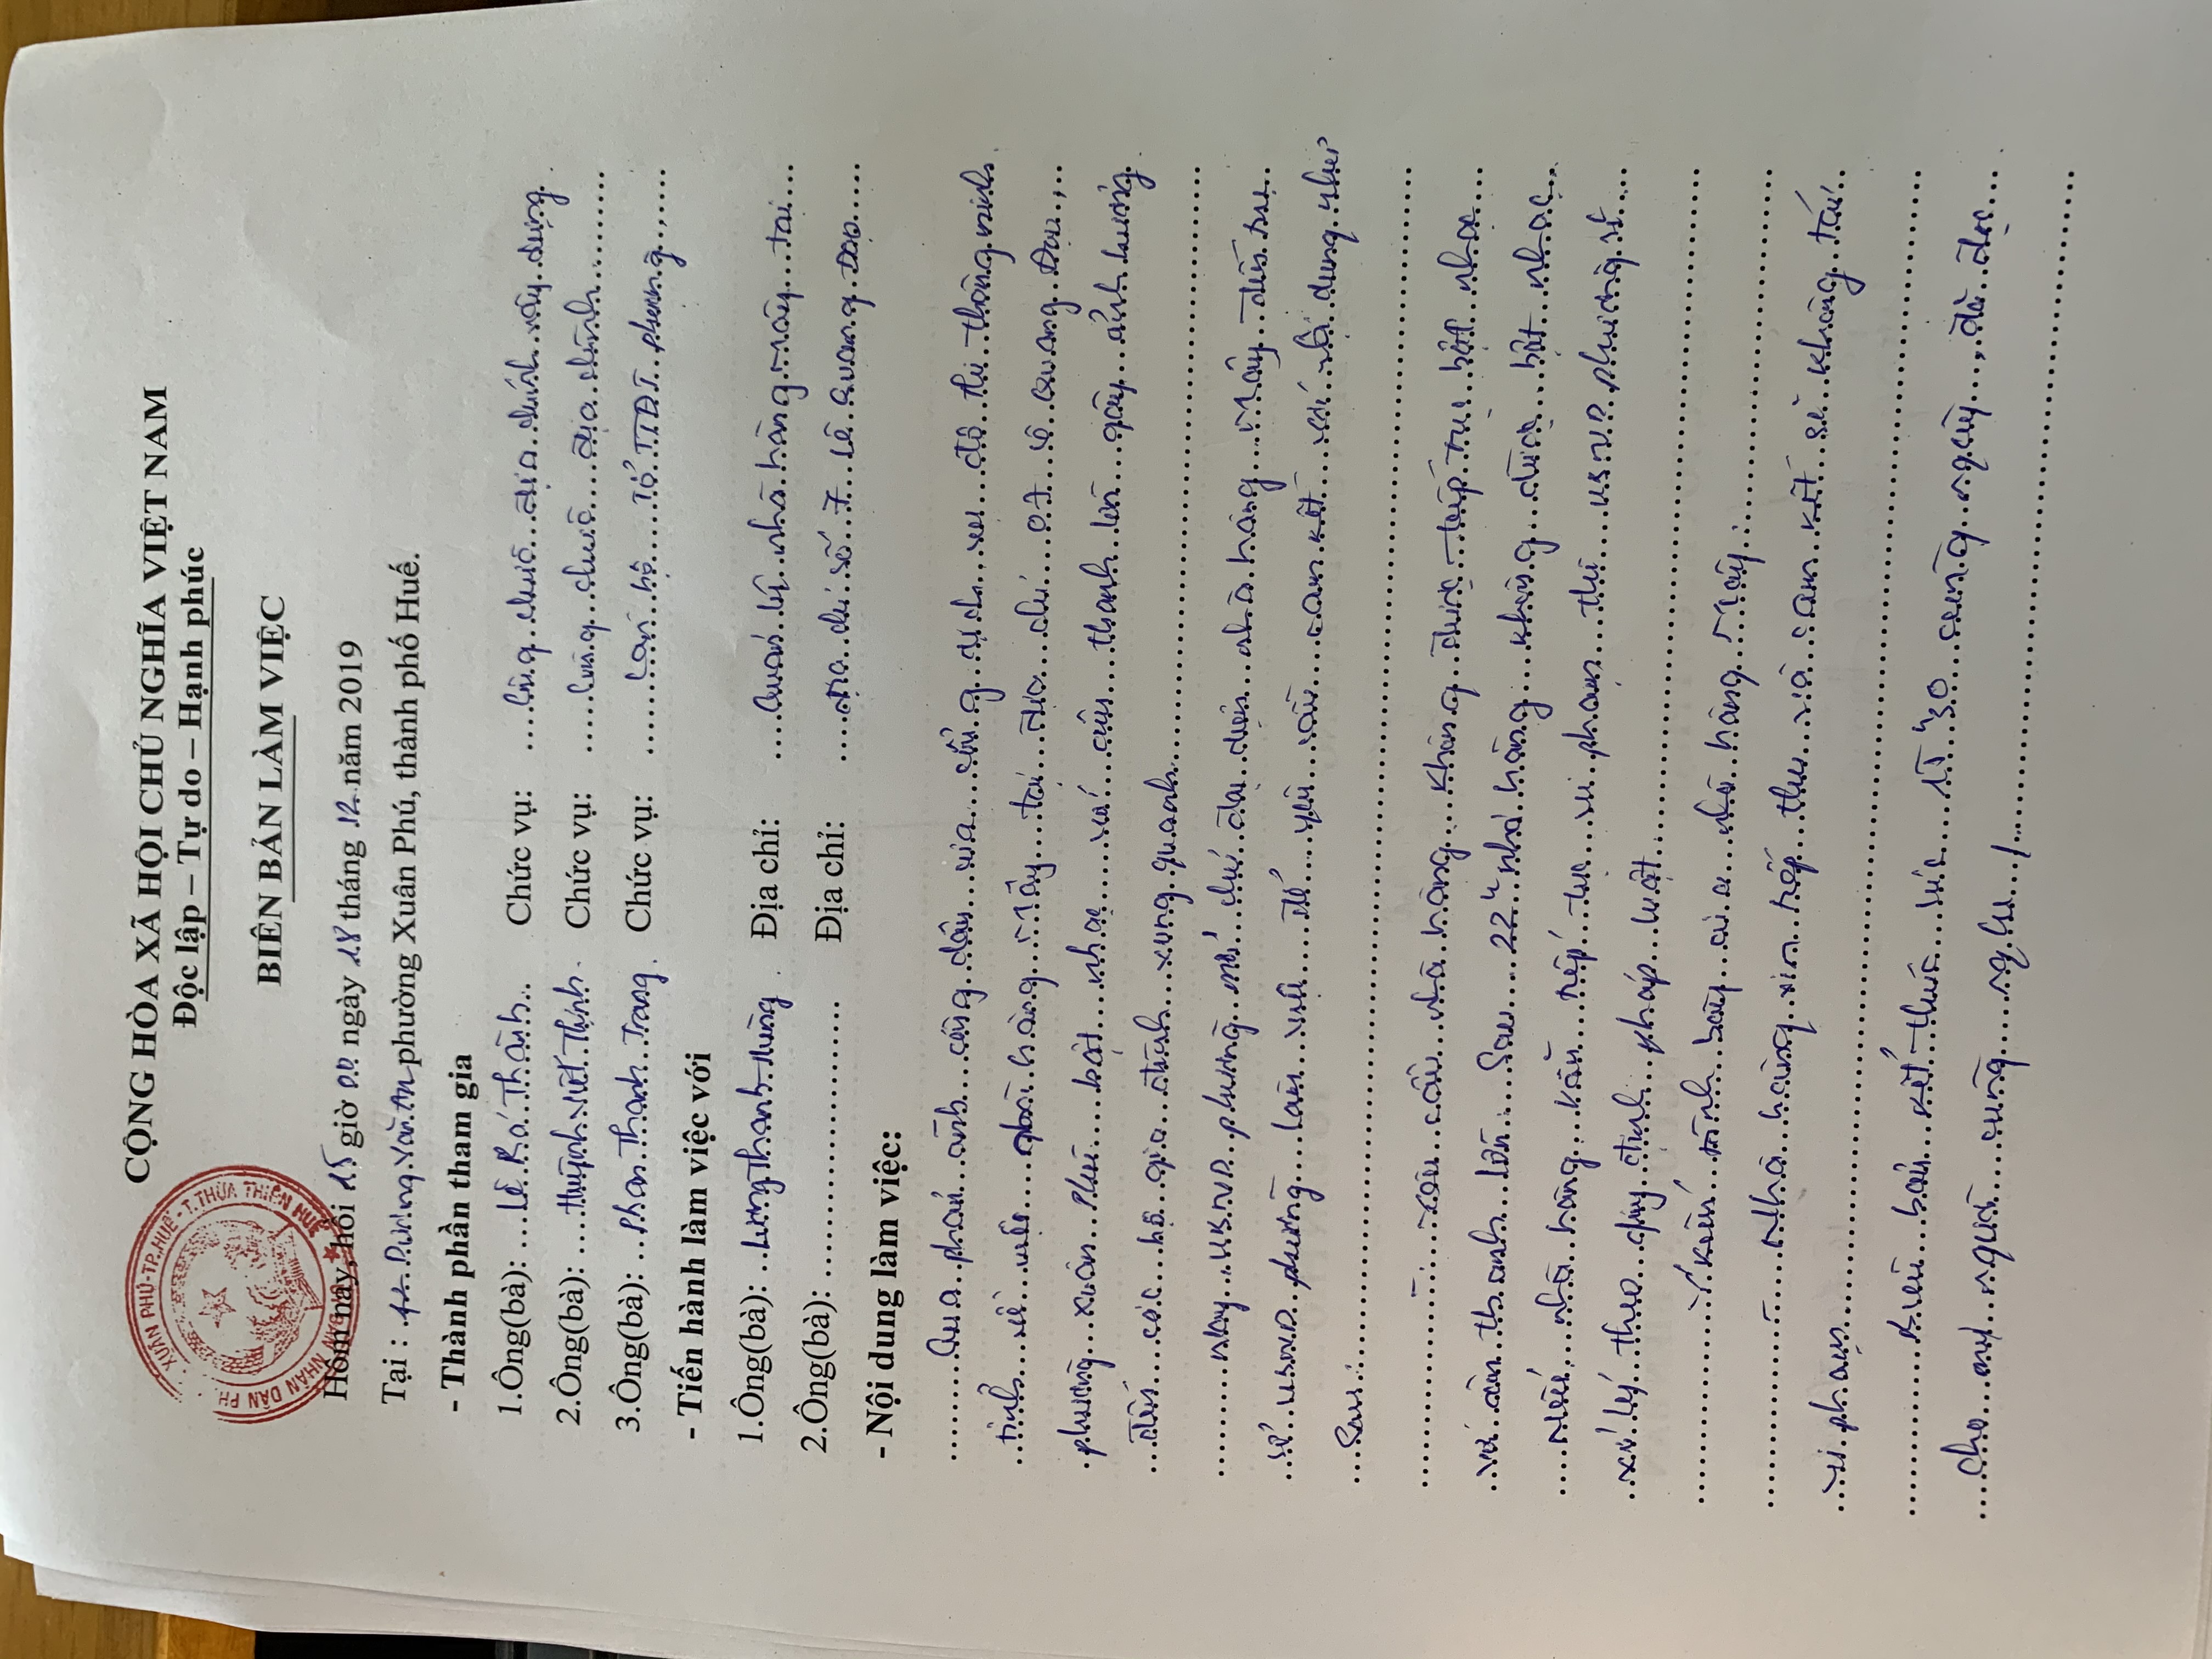 CỘNG HÒA XÃ HỘI CHỦ NGHĨA VIỆT NAM
Độc lập – Tự do – Hạnh phúc
BIÊN BẢN LÀM VIỆC
XUÂN PHÚ-TP.HUẾ - T.THỪA THIÊN HUẾ
NHÂN DÂN
Hôm nay, hồi 15 giờ 00 ngày 18 tháng 12 năm 2019
Tại : 42 Dương Văn An phường Xuân Phú, thành phố Huế.
- Thành phần tham gia
1.Ông(bà): Lê Bá Thành Chức vụ: Công chức địa chính xây dựng
2.Ông(bà): Huỳnh Viết Thịnh Chức vụ: Công chức địa chính
3.Ông(bà): Phan Thanh Trang Chức vụ: Cán bộ Tổ TTĐT phường
- Tiến hành làm việc với
1.Ông(bà): Lương Thanh Hùng Địa chỉ: Quản lý nhà hàng Mây tại
2.Ông(bà): Địa chỉ: địa chỉ số 7 Lê Quang Đạo
- Nội dung làm việc:
Qua phản ánh công dân của cổng dịch vụ đô thị thông minh
tỉnh về việc nhà hàng Mây tại địa chỉ 07 Lê Quang Đạo,
phường Xuân Phú bật nhạc với âm thanh lớn gây ảnh hưởng
đến các hộ gia đình xung quanh
nay UBND phường mời chủ đại diện nhà hàng Mây đến trụ
sở UBND phường làm việc để yêu cầu cam kết với nội dung như
Sau:
Yêu cầu nhà hàng không được tiếp tục bật nhạc
với âm thanh lớn. Sau 22h nhà hàng không được bật nhạc.
Nếu nhà hàng vẫn tiếp tục vi phạm thì UBND phường sẽ
xử lý theo quy định pháp luật
Ý kiến trình bày của nhà hàng Mây:
Nhà hàng xin tiếp thu và cam kết sẽ không tái
vi phạm
Biên bản kết thúc lúc 15h30 cùng ngày, đã đọc
cho mọi người cùng nghe./.